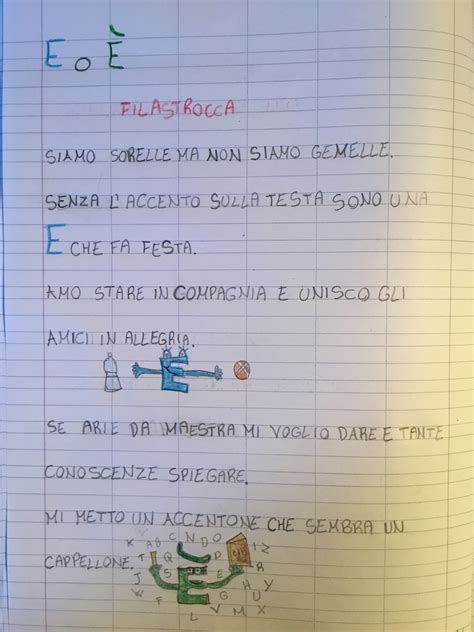 E O È
FILASTROCCA
SIAMO SORELLE MA NON SIAMO GEMELLE.
SENZA L'ACCENTO SULLA TESTA SONO UNA
E CHE FA FESTA.
AMO STARE IN COMPAGNIA E UNISCO GLI
AMICI IN ALLEGRIA.
E
SE ARIE DA MAESTRA MI VOGLIO DARE E TANTE
CONOSCENZE SPIEGARE.
MI METTO UN ACCENTONE CHE SEMBRA UN
CAPPELLONE.
K A B C N D O
T Q P I Z
J S È E R
W F G H U Y
L V M X